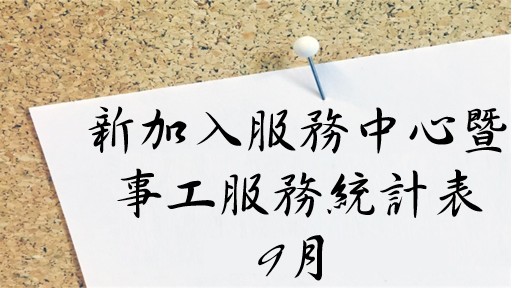 新加入服務中心暨
事工服務統計表
9月